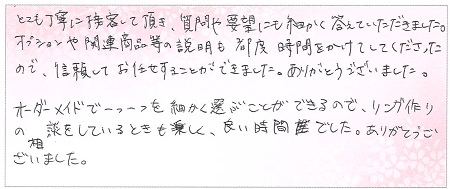 とても丁寧に接客して頂き、質問や要望にも細かく答えていただきました。
オプションや関連商品等の説明も都度時間をかけてしてくださった
ので、信頼してお任せすることができました。ありがとうございました。
オーダーメイドで一つ一つを細かく選ぶことができるので、リング作り
の相談をしているときも楽しく、良い時間でした。ありがとうござ
ざいました。